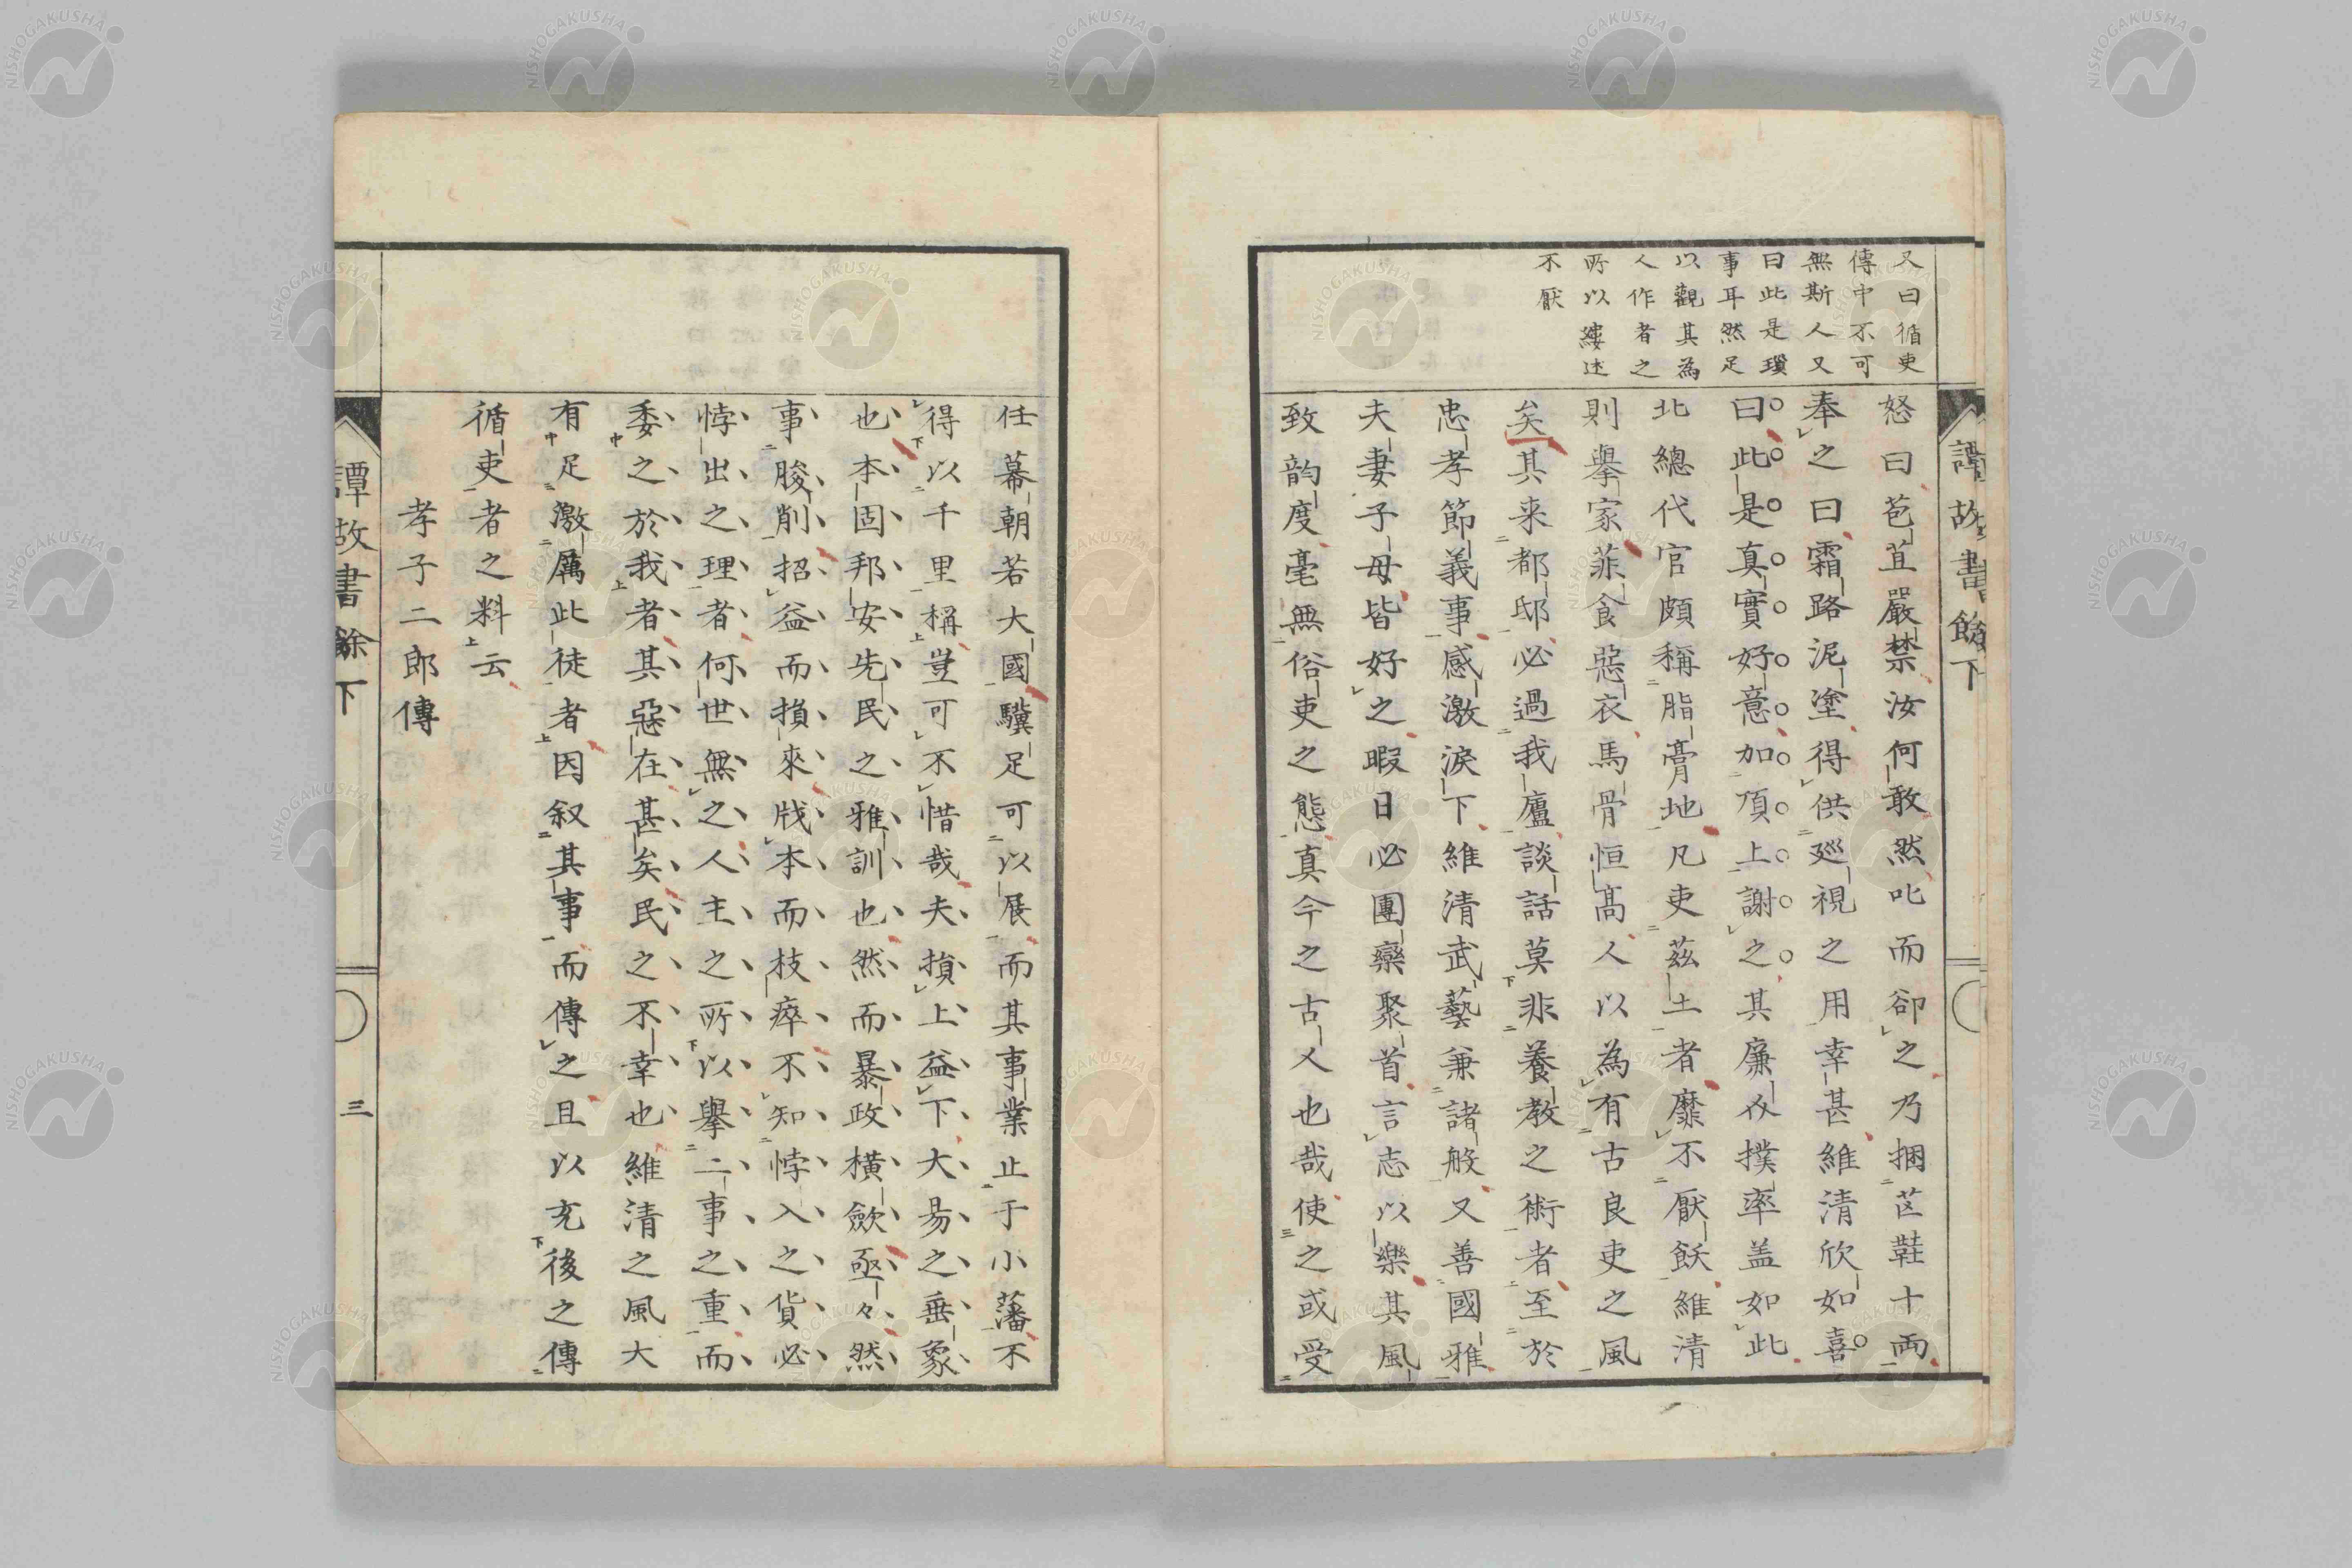 譚故書餘下
又曰循吏
傳中不可
無斯人又
曰此是瑣
事耳然足
以觀其為
人作者之
所以縷述
不厭
怒曰苞苴嚴禁汝何敢然叱而卻之乃捆芒鞋十両
奉之曰霜路泥塗得供廵視之用幸甚維清欣如喜
曰此是真實好意加頂上謝之其廉介撲率盖如此
北總代官頗稱脂膏地凡吏茲土者靡不厭飫維清
則擧家菲食惡衣馬骨恒髙人以為有古良吏之風
矣其来都邸必過我廬談話莫非養教之術者至於
忠孝節義事感激淚下維清武藝兼諸般又善國雅
夫妻子母皆好之暇日必團欒聚首言志以樂其風
致韵度毫無俗吏之態真今之古人也哉使之或受
任幕朝若大國驥足可以展而其事業止于小藩不
得以千里稱豈可不惜哉夫損上益下大昜之垂象
也本固邦安先民之雅訓也然而暴政橫歛亟々然
事朘削招益而損來戕本而枝瘁不知悖入之貨必
悖出之理者何世無之人主之所以擧二事之重而
委之於我者其惡在甚矣民之不幸也維清之風大
有足激厲此徒者因叙其事而傳之且以充後之傳
循吏者之料云
孝子二郎傳
譚故書餘下
三
NISHOGAKUSHA